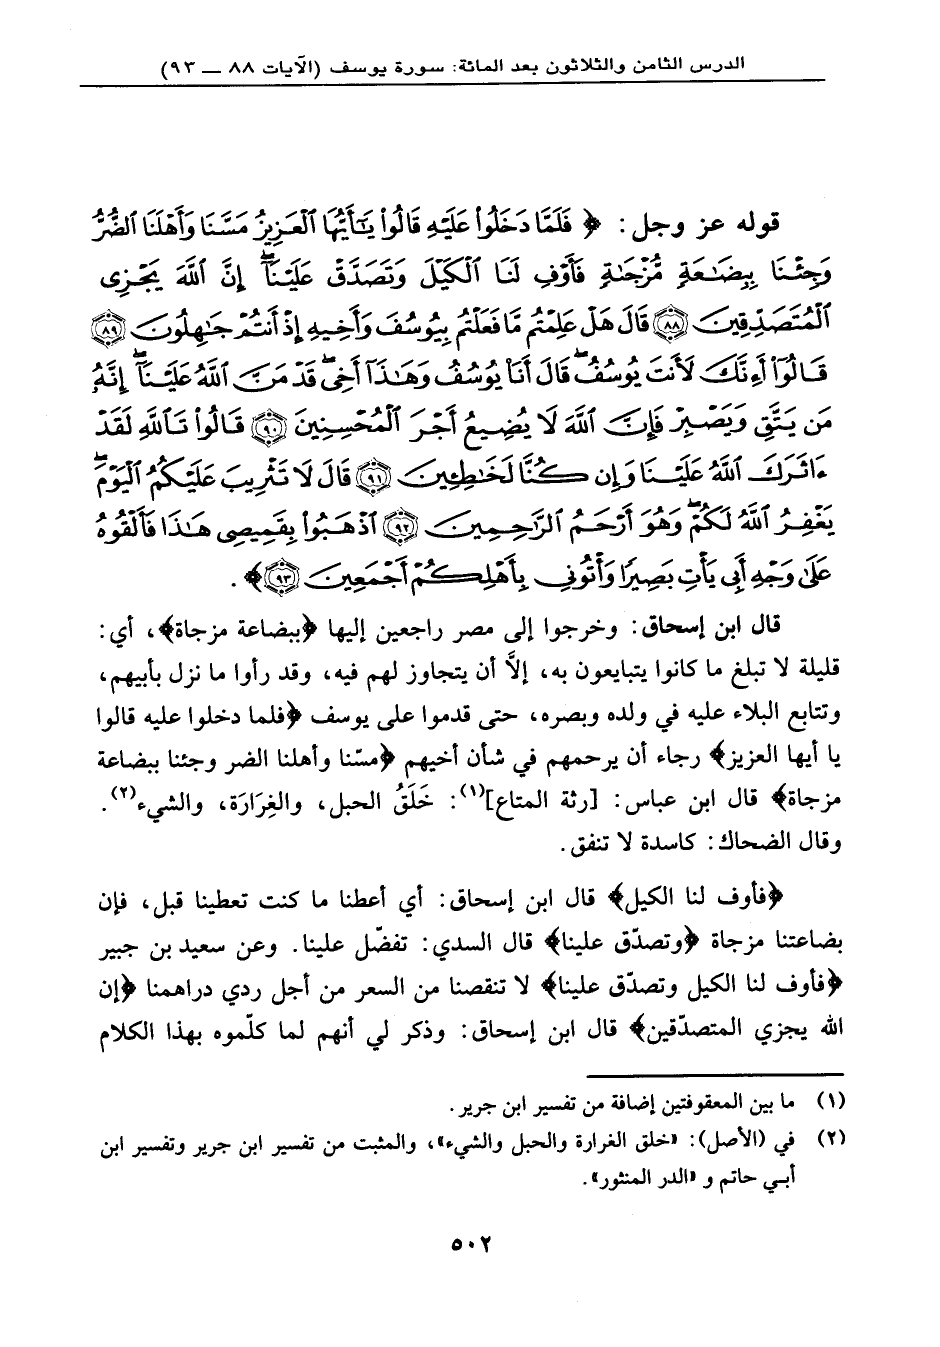 الدرس الثامن والثلاثون بعد المائة: سورة يوسف (الآيات ٨٨ ــ ٩٣)
قوله عز وجل: ﴿ فَلَمَّا دَخَلُوا۟ عَلَيْهِ قَالُوا۟ يَـٰٓأَيُّهَا ٱلْعَزِيزُ مَسَّنَا وَأَهْلَنَا ٱلضُّرُّ
وَجِئْنَا بِبِضَـٰعَةٍ مُّزْجَىٰةٍ فَأَوْفِ لَنَا ٱلْكَيْلَ وَتَصَدَّقْ عَلَيْنَآ ۖ إِنَّ ٱللَّهَ يَجْزِى
ٱلْمُتَصَدِّقِينَ ٨٨ قَالَ هَلْ عَلِمْتُم مَّا فَعَلْتُم بِيُوسُفَ وَأَخِيهِ إِذْ أَنتُمْ جَـٰهِلُونَ ٨٩
قَالُوٓا۟ أَءِنَّكَ لَأَنتَ يُوسُفُ ۖ قَالَ أَنَا۠ يُوسُفُ وَهَـٰذَآ أَخِى ۖ قَدْ مَنَّ ٱللَّهُ عَلَيْنَآ ۖ إِنَّهُۥ
مَن يَتَّقِ وَيَصْبِرْ فَإِنَّ ٱللَّهَ لَا يُضِيعُ أَجْرَ ٱلْمُحْسِنِينَ ٩٠ قَالُوا۟ تَٱللَّهِ لَقَدْ
ءَاثَرَكَ ٱللَّهُ عَلَيْنَا وَإِن كُنَّا لَخَـٰطِـِٔينَ ٩١ قَالَ لَا تَثْرِيبَ عَلَيْكُمُ ٱلْيَوْمَ ۖ
يَغْفِرُ ٱللَّهُ لَكُمْ ۖ وَهُوَ أَرْحَمُ ٱلرَّٰحِمِينَ ٩٢ ٱذْهَبُوا۟ بِقَمِيصِى هَـٰذَا فَأَلْقُوهُ
عَلَىٰ وَجْهِ أَبِى يَأْتِ بَصِيرًا وَأْتُونِى بِأَهْلِكُمْ أَجْمَعِينَ ٩٣ ﴾ .
قال ابن إسحاق: وخرجوا إلى مصر راجعين إليها ﴿ببضاعة مزجاة﴾، أي:
قليلة لا تبلغ ما كانوا يتبايعون به، إلاَّ أن يتجاوز لهم فيه، وقد رأوا ما نزل بأبيهم،
وتتابع البلاء عليه في ولده وبصره، حتى قدموا على يوسف ﴿فلما دخلوا عليه قالوا
يا أيها العزيز﴾ رجاء أن يرحمهم في شأن أخيهم ﴿مسّنا وأهلنا الضر وجئنا ببضاعة
مزجاة﴾ قال ابن عباس: [رثة المتاع](١): خَلَقُ الحبل، والغِرَارَة، والشيء(٢).
وقال الضحاك: كاسدة لا تنفق.
﴿فأوف لنا الكيل﴾ قال ابن إسحاق: أي أعطنا ما كنت تعطينا قبل، فإن
بضاعتنا مزجاة ﴿وتصدّق علينا﴾ قال السدي: تفضّل علينا. وعن سعيد بن جبير
﴿فأوف لنا الكيل وتصدّق علينا﴾ لا تنقصنا من السعر من أجل ردي دراهمنا ﴿إن
الله يجزي المتصدّقين﴾ قال ابن إسحاق: وذكر لي أنهم لما كلّموه بهذا الكلام
(١) ما بين المعقوفتين إضافة من تفسير ابن جرير.
(٢) في (الأصل): «خلق الغرارة والحبل والشيء»، والمثبت من تفسير ابن جرير وتفسير ابن
أبـي حاتم و «الدر المنثور».
٥٠٢